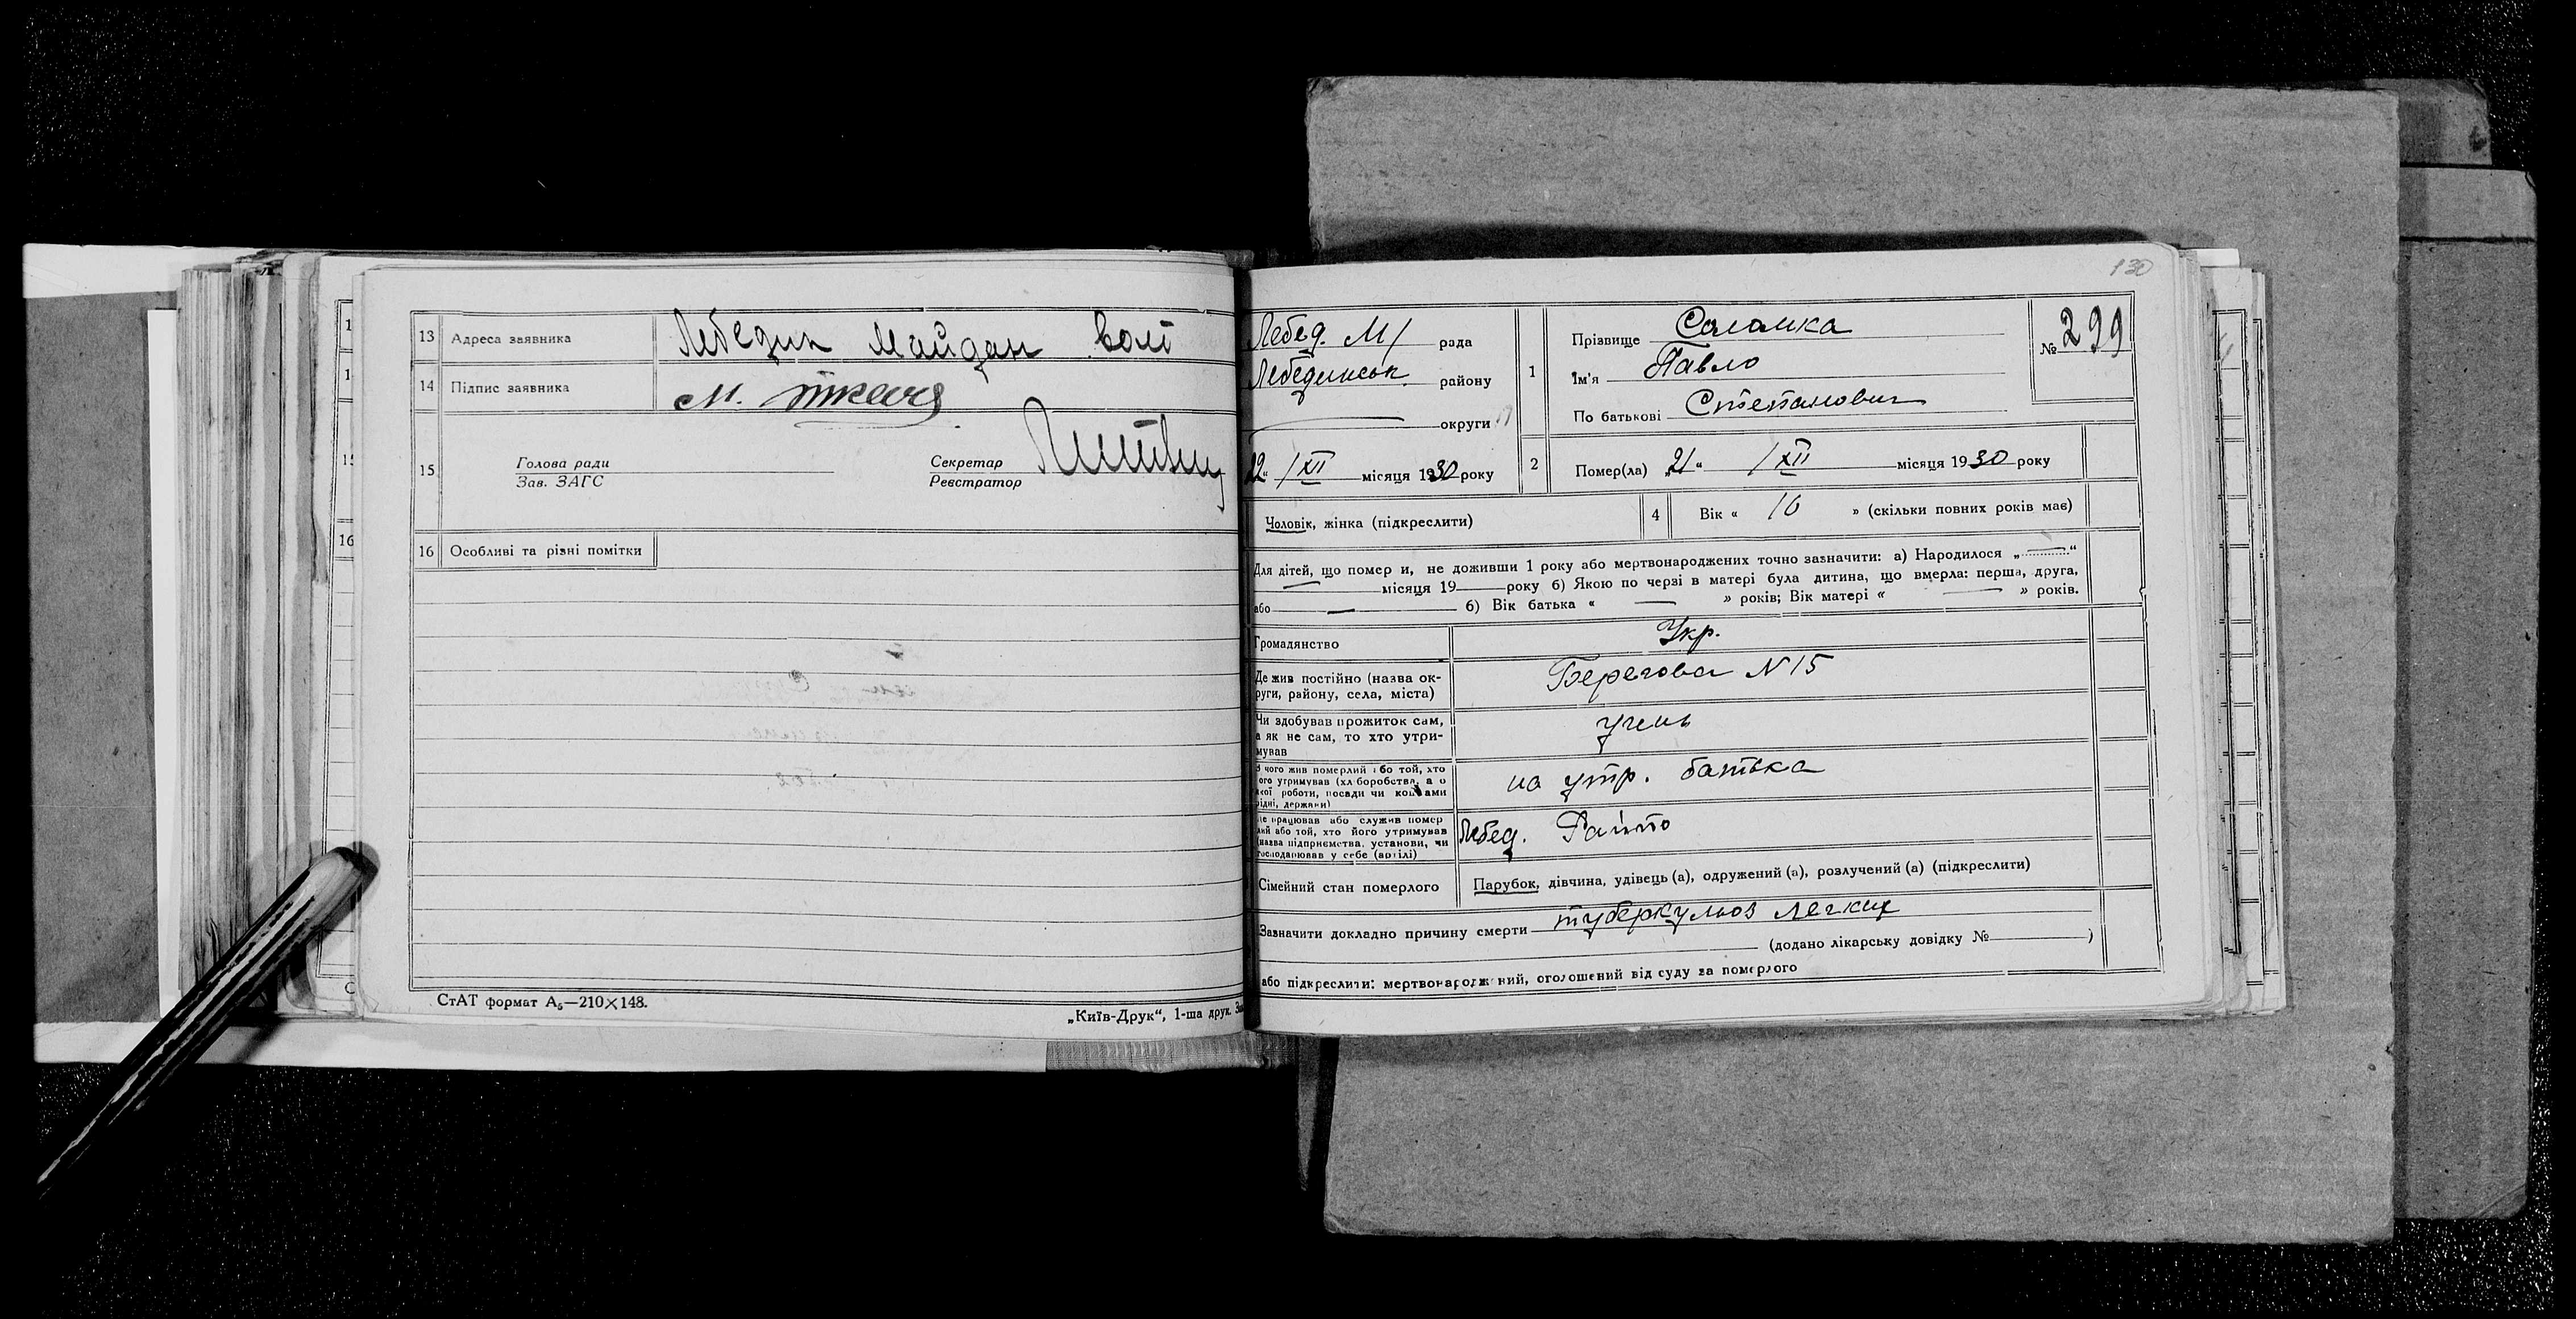 13 Адреса заявника Лебедин Майдан Волі
14 Підпис заявника М.
15 Голова ради
Зав. ЗАГС
Секретар
Реєстратор
16 Особливі та різні помітки
СтАТ формат А5—210×148.
„Київ-Друк“, 1-ша друк.
130
Лебед. М/ рада
Лебединськ. району
округи
22 “ /XII місяця 1930 року
1 Прізвище Соломка
Ім'я Павло
По батькові Степанович
№ 299
2 Помер(ла) „21“ /XII місяця 1930 року
Чоловік, жінка (підкреслити)
4 Вік « 16 » (скільки повних років має)
Для дітей, що помер и, не доживши 1 року або мертвонароджених точно зазначити: а) Народилося „—“
— місяця 19— року б) Якою по черзі в матері була дитина, що вмерла: перша, друга,
або — 6) Вік батька « — » років; Вік матері « — » років.
Громадянство Укр.
Де жив постійно (назва ок-
руги, району, села, міста) Берегова N 15
Чи здобував прожиток сам,
а як не сам, то хто утри-
мував учень
З чого жив померлий або той, хто
його утримував (хліборобства, а о
якої роботи, посади чи коштами
рідні, держави) на утр. батька
Де працював або служив помер
лий або той, хто його утримував
(назва підприємства, установи, чи
господарював у себе (артілі) Лебед.
Сімейний стан померлого Парубок, дівчина, удівець (а), одружений (а), розлучений (а) (підкреслити)
Зазначити докладно причину смерти туберкульоз легких
(додано лікарську довідку № )
або підкреслити: мертвонароджений, оголошений від суду за померлого